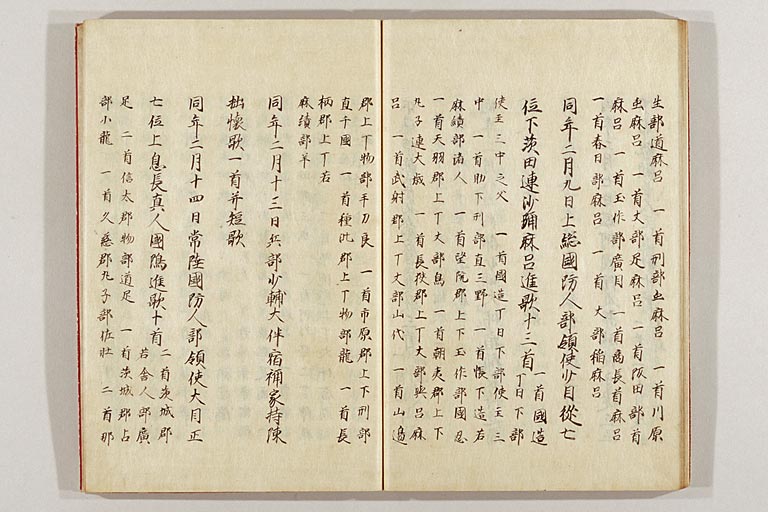 生部道麻呂 一首刑部虫麻呂 一首川原
虫麻呂 一首丈部足麻呂 一首阪田部首
麻呂 一首玉作部廣月 一首商長首麻呂
一首春日部麻呂 一首 大部稲麻呂
同年二月九日上総國防人部領使少目從七
位下茨田連沙彌麻呂進歌十三首 一首國造丁日下部
使主三中之父 一首國造丁日下部使主三
中 一首助丁刑部直三野 一首帳下造若
麻續部諸人 一首望陀郡上丁玉作部國忍
一首天羽郡上丁大部鳥 一首朝夷郡上丁
丸子連大歳 一首長狭郡上丁大部與呂麻
呂 一首武射郡上丁丈部山代 一首山邊
郡上丁物部手刀良 一首市原郡上丁刑部
直千國 一首種淮郡上丁物部龍 一首長
柄郡上丁若
麻續部羊
同年二月十三日兵部少輔大伴宿祢家持陳
拙懷歌一首并短歌
同年二月十四日常陸國防人部領使大目正
七位上息長真人國嶋進歌十首 二首茨城郡若舍人部廣
足 二首信太郡物部道足 一首茨城郡占
部小龍 一首久慈郡丸子部佐壯 二首那